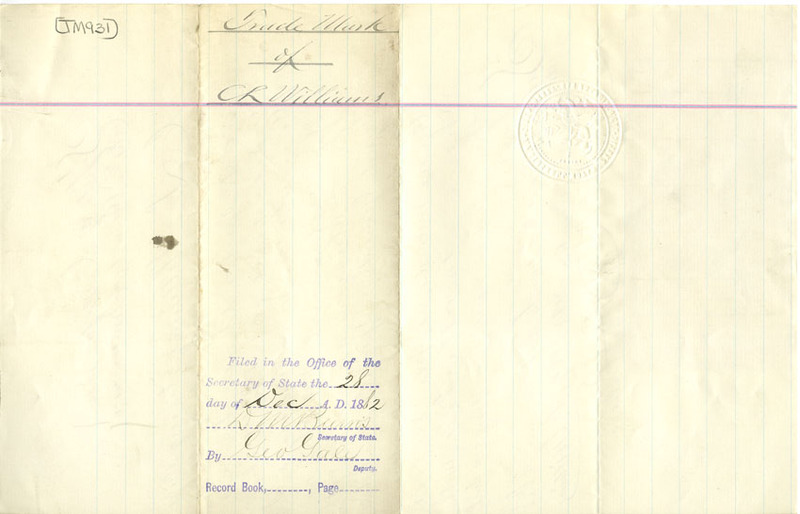 [TM931]
Trade Mark
of
CR Williams
Filed in the Office of the
Secretary of State the 28
day of Dec A. D. 1882
Secretary of State.
By Geo
Deputy.
Record Book, , Page